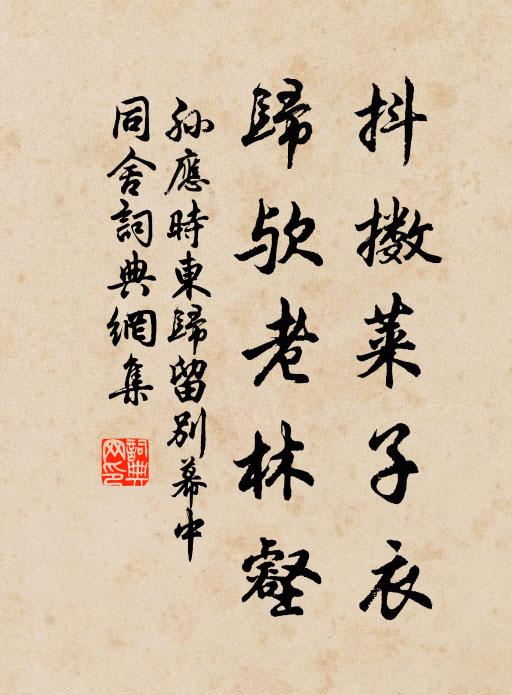 抖擻萊子衣
歸欤老林壑
孙應時東歸留别幕中
同舍詞典網集
詞典網印